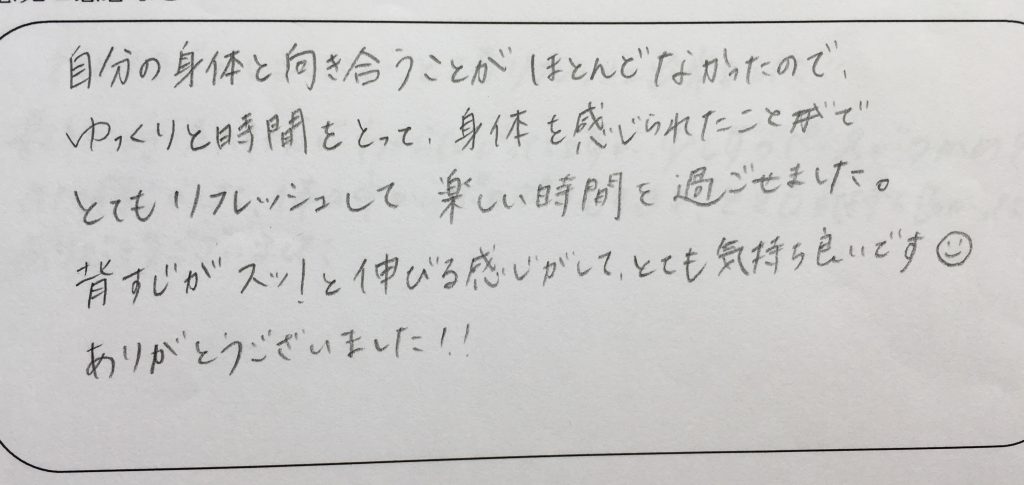 自分の身体と向き合うことがほとんどなかったので、
ゆっくりと時間をとって、身体を感じられたことで
とてもリフレッシュして楽しい時間を過ごせました。
背すじがスッ!と伸びる感じがして、とても気持ち良いです☺
ありがとうございました!!